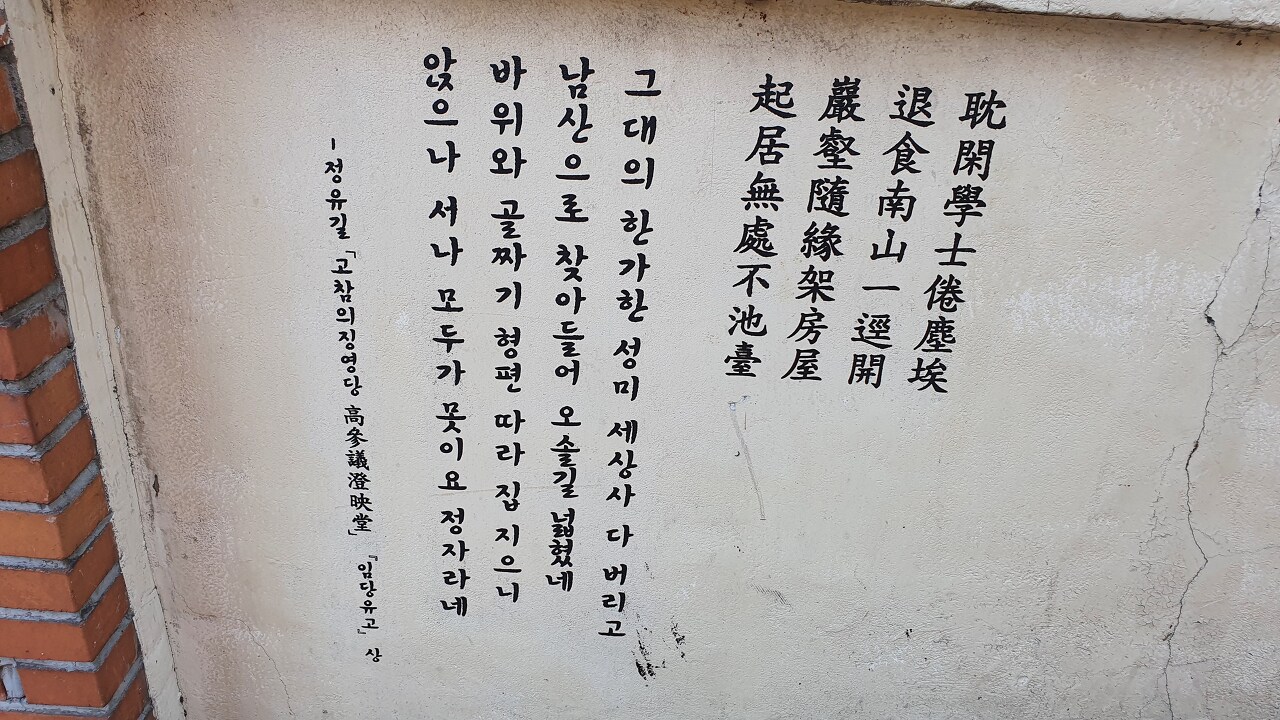 耽閑學士倦塵埃
退食南山一逕開
巖壑隨緣架房屋
起居無處不池臺
그대의 한가한 성미 세상사 다 버리고
남산으로 찾아들어 오솔길 넓혔네
바위와 골짜기 형편 따라 집 지으니
앉으나 서나 모두가 못이요 정자라네
-정유길 「고참의징영당 高參議澄映堂」 『임당유고』 상